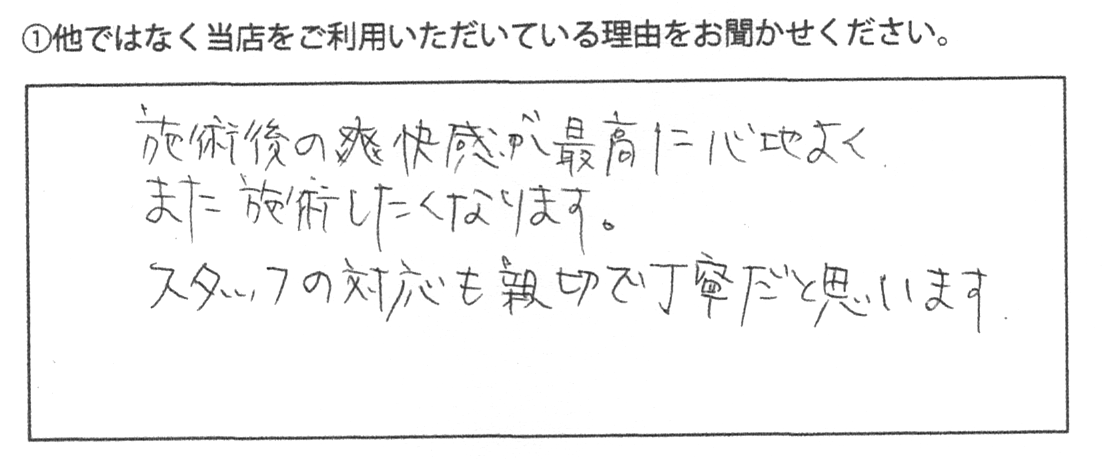 ①他ではなく当店をご利用いただいている理由をお聞かせください。
施術後の爽快感が最高に心地よく
また施術したくなります。
スタッフの対応も親切で丁寧だと思います.